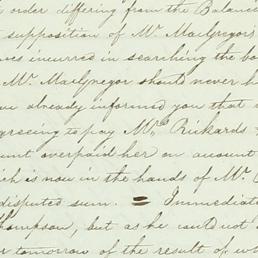 order differing from the Balanc
supposition of Mr. MacGregors
es incurred in searching the bo
Mr. MacGregor should never h
already informed you that
greeing to pay Mrs. Rickards
unt overpaid her on account
ich is now in the hands of Mr.
disputed sum. = Immediat
hompson, but as he could not
tomorrow of the result of wh